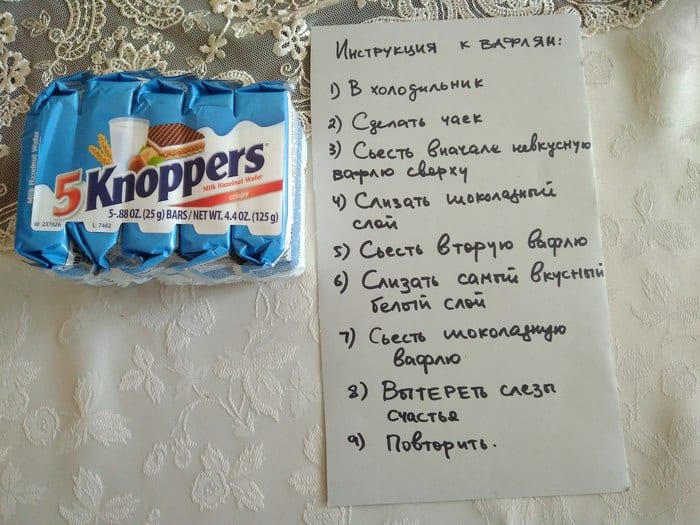 Инструкция к вафлям:
1) В холодильник
2) Сделать чаек
3) Съесть вначале невкусную
вафлю сверху
4) Слизать шоколадный
слой
5) Съесть вторую вафлю
6) Слизать самый вкусный
белый слой
7) Съесть шоколадную
вафлю
8) Вытереть слезы
счастья
9) Повторить.
Milk Hazelnut Wafer
5 Knoppers
Milk Hazelnut Wafer
crispy
5-.88 OZ. (25 g) BARS / NET WT. 4.4 OZ. (125 g)
Id: 237026 L: 7462